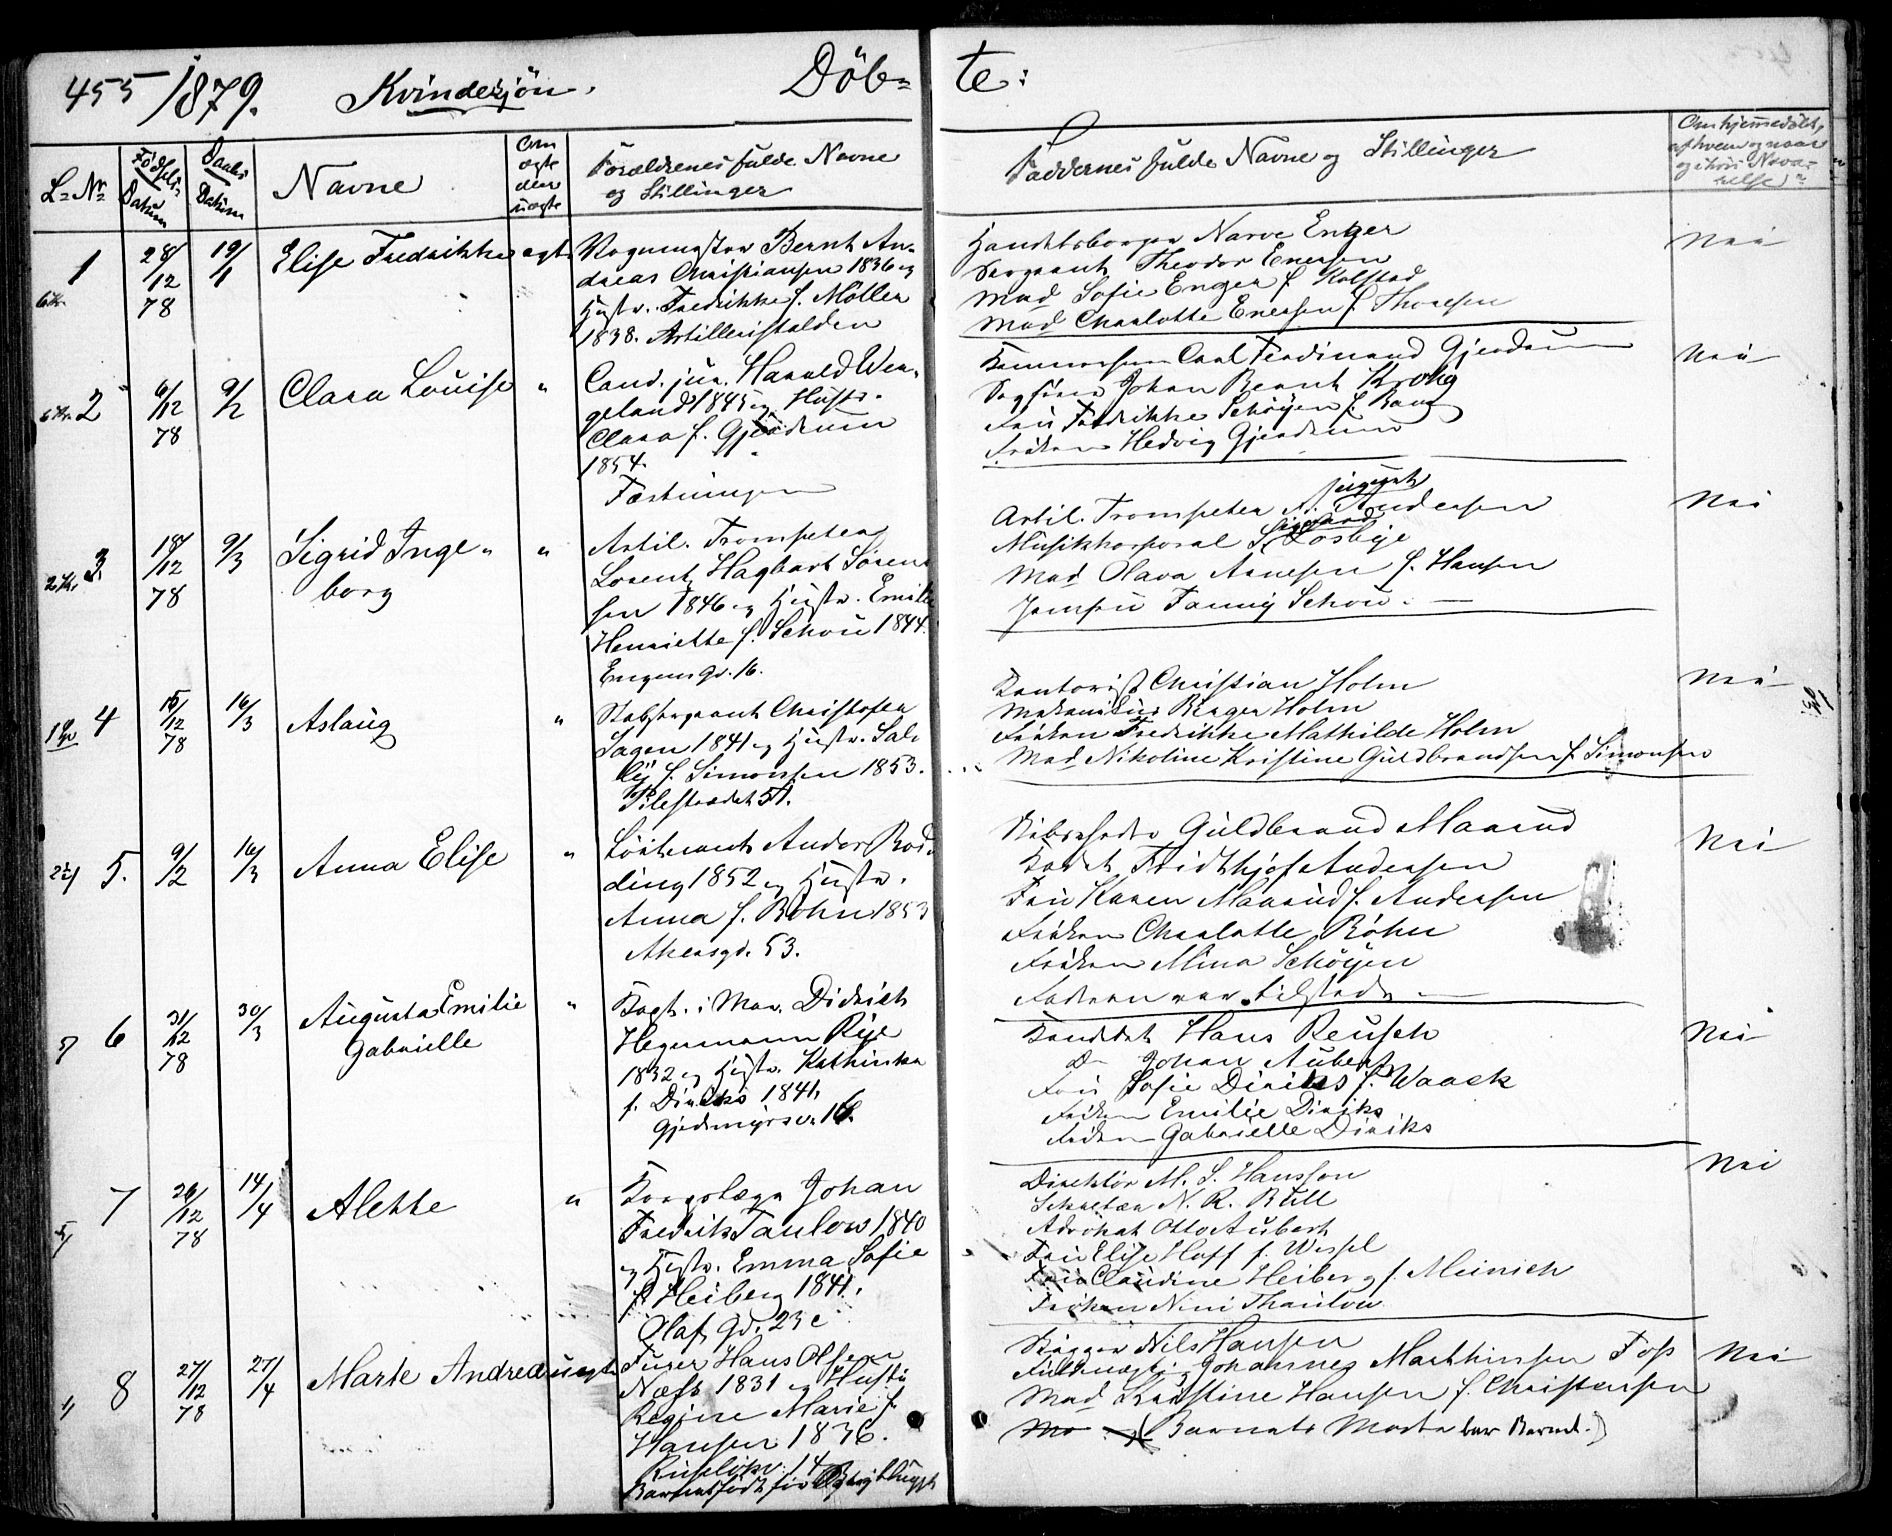 455 1879. Kvindekjön. Döb= te:
L= No Födsels Datum Daabs Datum Navne Om ægte eller uægte Forældrenes fulde Navne og Stillinger Faddernes fulde Navne og Stillinger Om hjemmedöbt, af hvem og naar
1 28/12 78 19/1 Elise Fredrikke ægte
Vognmester Bernt An=
dreas Christiansen 1836 og
Hustr. Fredrikke f. Möller
1838. Artilleristalden
Handelsborger Narve Enger
Sergeant Theodor Enersen
Mad Sofie Enger f. Kolstad
Mad Charlotte Enersen f. Thoresen
Nei
6 Kr. 2 6/12 78 9/2 Clara Louise "
Cand. jur. Harald Wer=
geland 1845 og Hustr.
Clara f. Gjerdrum
1854.
Fæstningen
Carl Ferdinand Gjerdrum
Sagförer Johan Bernt Krohg
Fru Fredrikke Schöyen f. Bang
Fröken Hedvig Gjerdrum
Nei
2 Kr. 3. 18/12 78 9/3 Sigrid Inge=
borg "
Artil. Trompeter
Lorentz Hagbart Sören=
sen 1846 og Hustr. Emilie
Henriette f. Schou 1844.
Engens Gd. 16.
Artil. Trompeter A. Andersen
Musikkorporal S. Losbye
Mad Olava Arnesen f. Hansen
Jomfru Fanny Schou.
Nei
4 15/12 78 16/3 Aslaug "
Stabssergeant Christofer
Sagen 1841 og Hustr. Sal=
ly f. Simonsen 1853.
Pilestrædet 51.
Kontorist Christian Holm
Mekanikus Birger Holm
Fröken Fredrikke Mathilde Holm
Mad Nikoline Kristine Guldbrandsen f. Simonsen
Nei
5. 9/2 16/3 Anna Elise "
Löitnant Anders Rod=
ding 1852 og Hustr.
Anna f. Böhn 1853
Akersgd. 53.
Skibsreder Guldbrand Maarud
Kadet Fridthjof Andersen
Fru Karen Maarud f. Andersen
Fröken Charlotte Böhn
Fröken Mina Schöyen
Faderen var tilstede
Nei
6 31/12 78 30/3 Augusta Emilie
Gabrielle "
Kapt. i Mar. Didrich
Hegermann Rye
1832 og Hustr. Kathinka
f. Diriks 1841,
Gjedemyrsv. 16.
Kandidat Hans Reusch
D= Johan Aubert
Fru Sofie Diriks f. Waack
Fröken Emilie Diriks
Fröken Gabrielle Diriks
Nei
7 26/12 78 14/4 Alette "
Korpslæge Johan
Fredrik Taulow 1840
og Hustr. Emma Sofie
f. Heiberg 1841.
Olafs Gd. 23 c
Direktör M. S. Hansson
Sekretær N. R. Bull
Advokat Otto Aubert
Fru Elise Hoff f. Wessel
Fru Claudine Heiberg f. Meinich
Fröken Nini Thaulow
Nei
8 27/12 78 27/4 Marte Andrea uægte
Furer Hans Olsen
Næss 1831 og Hustr.
Regine Marie f.
Hansen 1836.
Ruselökv. 14
Barnet födt för
Bygger Nils Hansen
Fuldmægtig Johannes Matthiesen Foss
Mad Kristine Hansen f. Christensen
(Barnets Moder bar Barnet.)
Nei